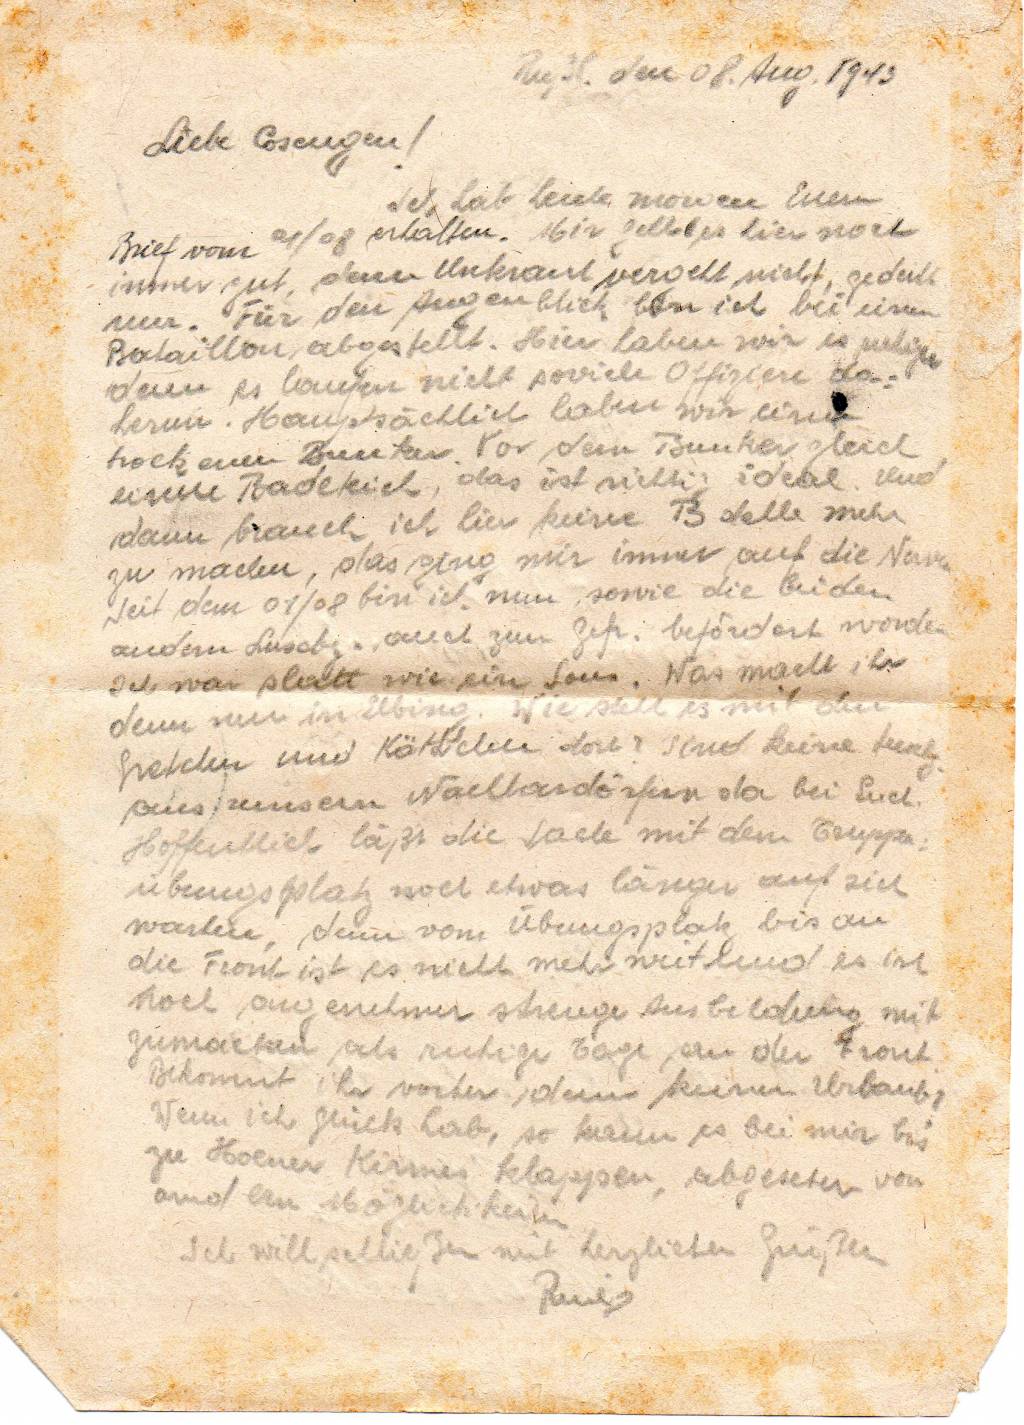 den 08. Aug. 1943
Liebe
Ich hab heute morgen Euern
Brief vom 01/08 erhalten. Mir geht es hier noch
immer gut, denn Unkraut vergeht nicht, gedeiht
nur. Für den Augenblick bin ich bei einem
Bataillon abgestellt. Hier haben wir es ruhiger
denn es laufen nicht soviele Offiziere da-
herum. Hauptsächlich haben wir einen
trockenen Bunker. Vor dem Bunker gleich
eine Badeteich, das ist richtig ideal. Und
dann brauch ich hier keine mehr
zu machen, das ging mir immer auf die Nerven
Seit dem 01/08 bin ich nun, sowie die beiden
andern auch zum Gefr. befördert worden
Ich war platt wie ein Sou. Was macht ihr
denn nun in Elbing. Wie steht es mit den
Gretchen und Käthchen dort? Sind keine
aus unsern Nachbardörfern da bei Euch.
Hoffentlich läßt die Sache mit dem Truppen-
übungsplatz noch etwas länger auf sich
warten, denn vom Übungsplatz bis an
die Front ist es nicht mehr weit und es ist
noch angenehmer strenge Ausbildung mit
zumachen als ruhige Tage an der Front
Bekommt ihr vorher denn keinen Urlaub?
Wenn ich Glück hab, so kann es bei mir bis
zu Kirmes klappen, abgesehen von
andern Möglichkeiten
Ich will schließen mit herzlichen Grüßen